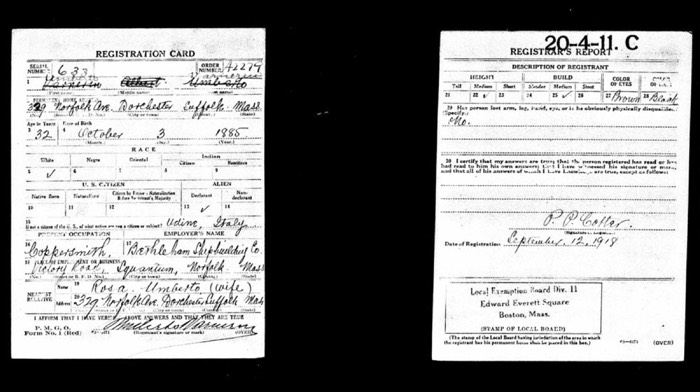 REGISTRATION CARD
SERIAL NUMBER 633 ORDER NUMBER
1 Umberto
PERMANENT HOME ADDRESS
329 Norfolk Ave. Dorchester Suffolk Mass.
Age in Years Date of Birth
32 October 3 1885
RACE
White Negro Oriental Indian
Citizen
5 ✓ 6 7 8 9
U. S. CITIZEN ALIEN
Native Born Naturalized Declarant Non-declarant
10 11 12 13 ✓ 14
15 If not a citizen of the U.S., of what nation are you a citizen or subject? Udine, Italy
PRESENT OCCUPATION EMPLOYER'S NAME
16 Coppersmith, 17 Bethleham Shipbuilding Co.
18 PLACE OF EMPLOYMENT OR BUSINESS
Victory Road, Squantum, Norfolk Mass
NEAREST RELATIVE Name 19 Rosa Umberto (wife)
Address 20 329 Norfolk Ave. Dorchester Suffolk Mass
I AFFIRM THAT I HAVE VERIFIED ABOVE ANSWERS AND THAT THEY ARE TRUE
P. M. G. O.
Form No. 1 (Red) (Registrant's signature or mark) (OVER)
20-4-11. C
REGISTRAR'S REPORT
DESCRIPTION OF REGISTRANT
HEIGHT BUILD COLOR OF EYES COLOR OF HAIR
Tall Medium Short Slender Medium Stout
21 22 23 24 25 ✓ 26 27 Brown 28 Black
29 Has person lost arm, leg, hand, eye, or is he obviously physically disqualified?
(Specify.)
No.
30 I certify that my answers are true; that the person registered has read or has
had read to him his own answers; that I have witnessed his signature or mark,
and that all of his answers of which I have knowledge are true, except as follows:
P. P. Cotter.
Date of Registration September 12, 1918
Local Exemption Board Div. 11
Edward Everett Square
Boston, Mass.
(STAMP OF LOCAL BOARD)
(The stamp of the Local Board having jurisdiction of the area in which
the registrant has his permanent home shall be placed in this box.)
(OVER)